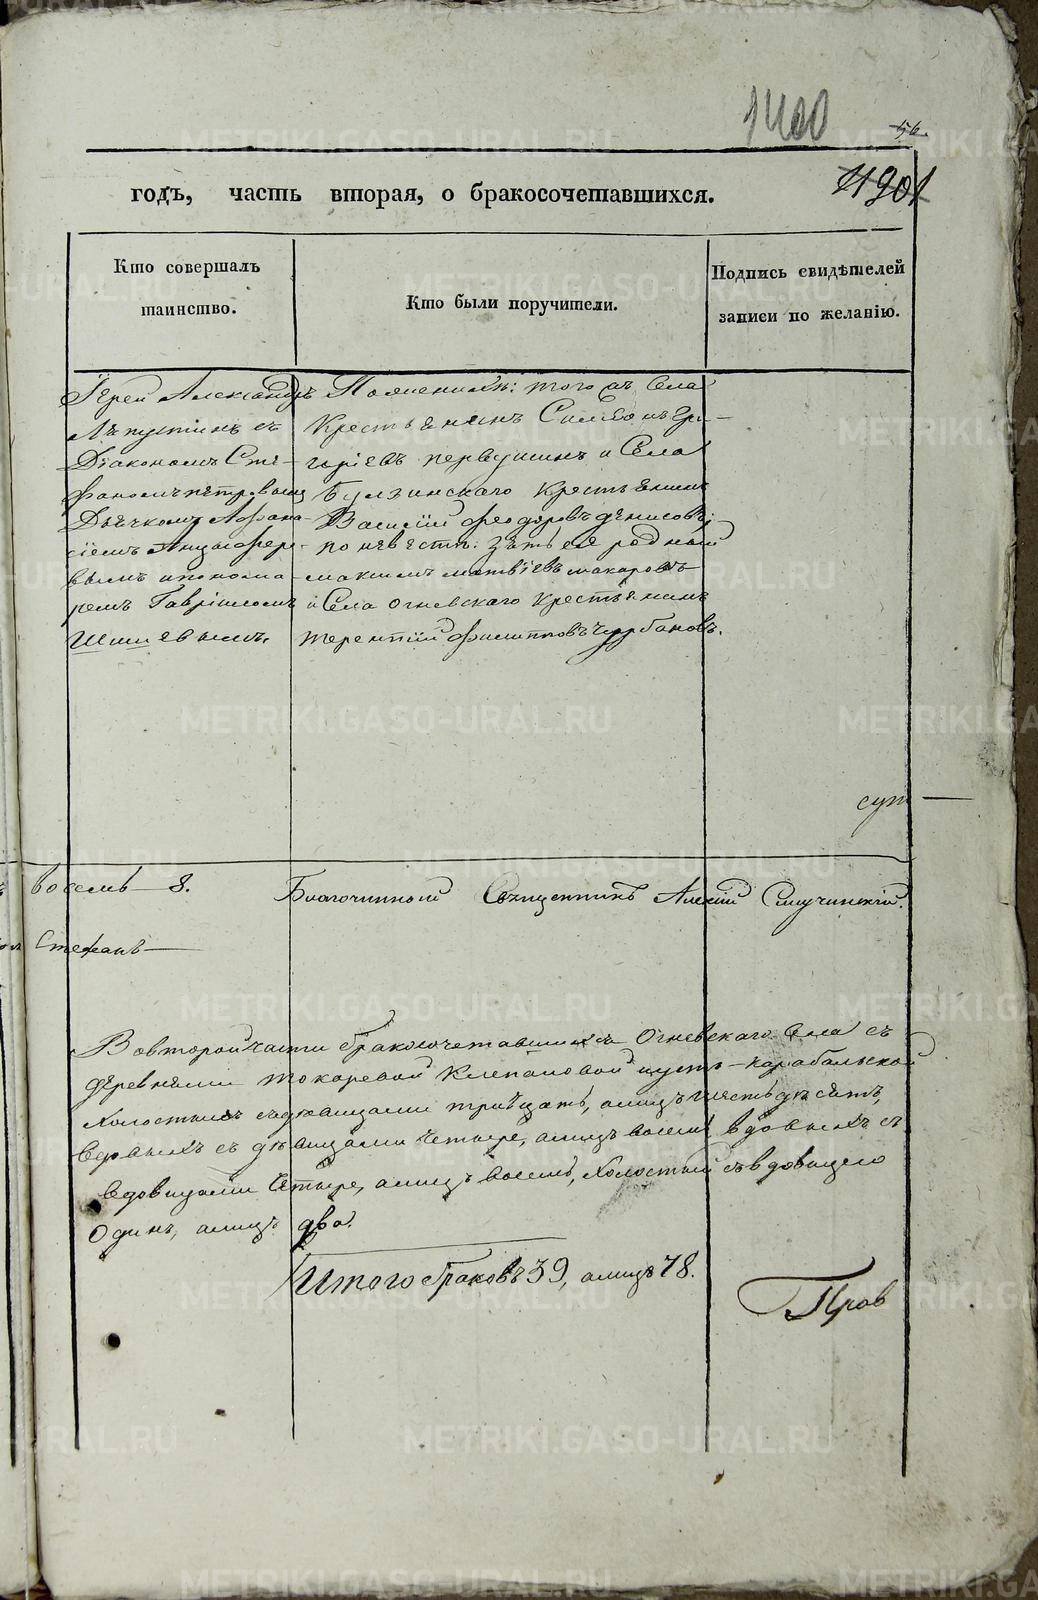 1400
56.
11901
годъ, часть вторая, о бракосочетавшихся.
Кто совершалъ
таинство.
Кто были поручители.
Подпись свидѣтелей
записи по желанію.
Іерей Александръ
Лѣпустинъ съ
Діакономъ Сте-
фаномъ петровымъ
Дьячкомъ Афана-
сіемъ Анцыферо-
вымъ ипонома-
ремъ Гавріиломъ
Шишевымъ.
Поженихѣ: того жъ Села
Крестьянинъ Григо-
ріевъ первушинъ и Села
Булзинскаго Крестьянинъ
Василій феодоровъ денисовъ;
по невѣстѣ: зять ея родный
максимъ матвіевъ макаровъ
и Села огневскаго крестьянинъ
терентій филипповъ Чурбановъ.
сут
восемь 8.
Благочинный Священникъ Алексій Случинскій.
Стефанъ
Во второй части бракосочетавшихся Огневскаго Села съ
деревнями токаревой Клепаловой иусть-карабольской
холостыхъ съдѣвицами тридцать, алицъ шестьдесятъ,
вдовыхъ съ дѣвицами четыре, алицъ восемь, вдовыхъ съ
вдовицами четыре, алицъ восемь, холостый съвдовицею
Одинъ, алицъ два.
Итого браковъ 39, алицъ 78.
Пров
METRIKI.GASO-URAL.RU